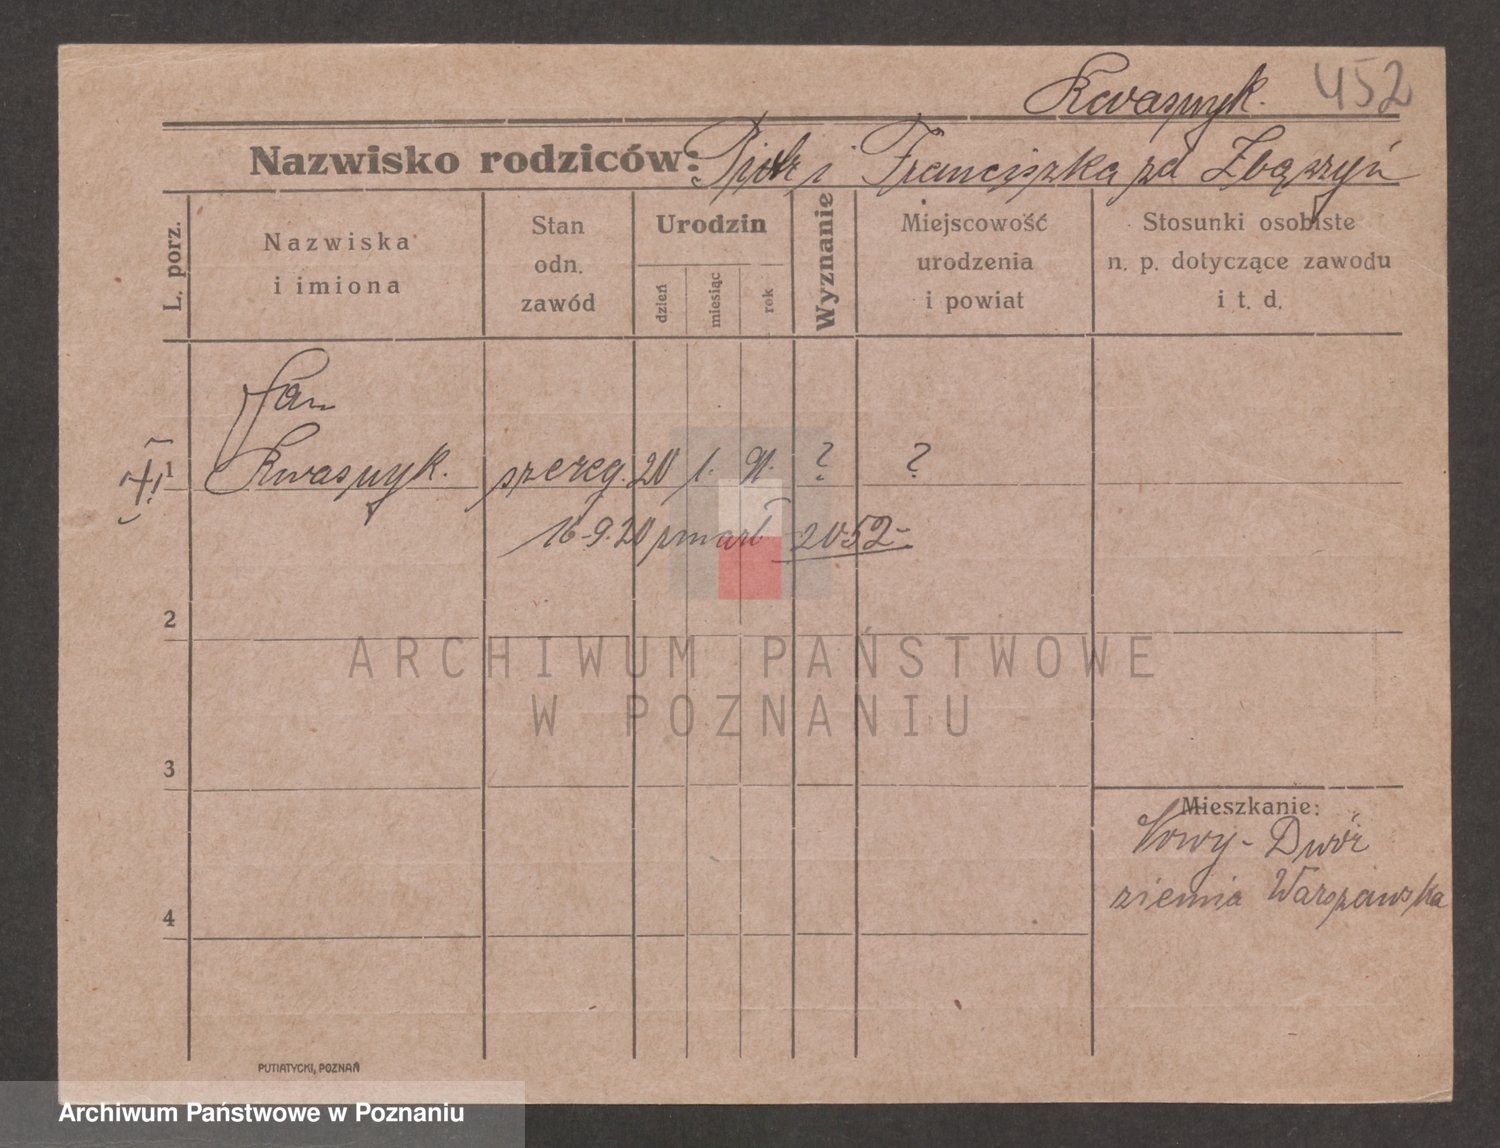 Kwaśnyk. 452
Nazwisko rodziców: Piotr i Franciszka zd
L. porz.
Nazwiska i imiona
Stan odn. zawód
Urodzin
dzień
miesiąc
rok
Wyznanie
Miejscowość urodzenia i powiat
Stosunki osobiste n. p. dotyczące zawodu i t. d.
Jan
1 szereg. 20 1. 91. ? ?
16-9.20 zmarł 2052-
2
ARCHIWUM PAŃSTWOWE
W POZNANIU
3
Mieszkanie:
Nowy-Dwór
ziemia Warszawska
4
PUTIATYCKI, POZNAŃ
Archiwum Państwowe w Poznaniu